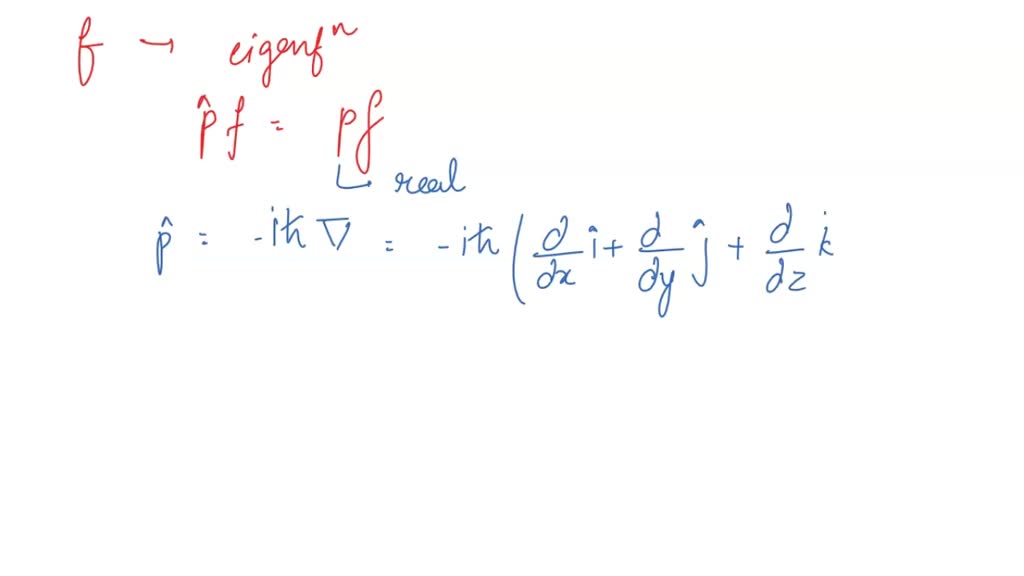 f → eigenfⁿ
p̂ f = pf
↳ real
p̂ = -iħ ∇ = -iħ ( ∂/∂x î + ∂/∂y ĵ + ∂/∂z k̂